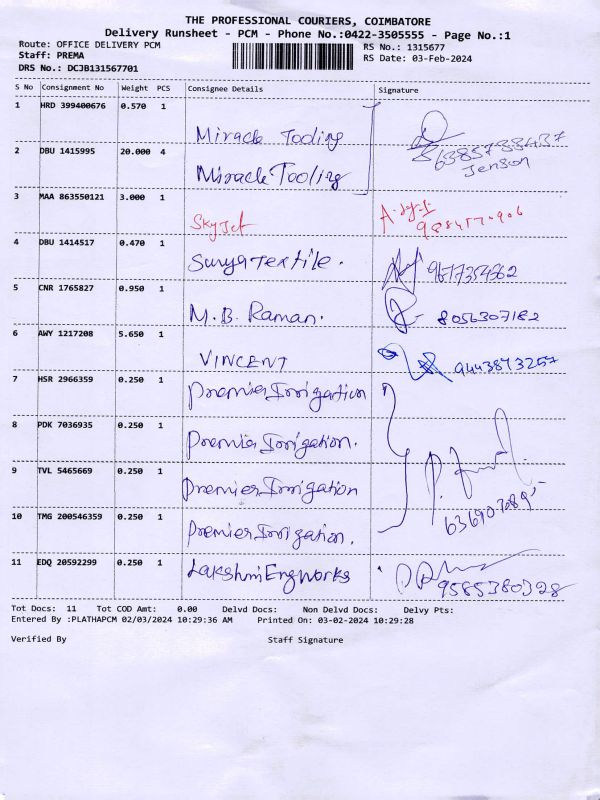 THE PROFESSIONAL COURIERS, COIMBATORE
Delivery Runsheet - PCM - Phone No.:0422-3505555 - Page No.:1
Route: OFFICE DELIVERY PCM RS No.: 1315677
Staff: PREMA RS Date: 03-Feb-2024
DRS No.: DCJB131567701
S No Consignment No Weight PCS Consignee Details Signature
1 HRD 399400676 0.570 1
Miracle Tooling
2 DBU 1415995 20.000 4
Jenson
Miracle Tooling
3 MAA 863550121 3.000 1
SkyJet
4 DBU 1414517 0.470 1
Surya Textile.
5 CNR 1765827 0.950 1
M.B. Raman. 8056307182
6 AWY 1217208 5.650 1
VINCENT 9443873257
7 HSR 2966359 0.250 1
Premier Irrigation
8 PDK 7036935 0.250 1
Premier Irrigation.
9 TVL 5465669 0.250 1
Premier Irrigation
10 TMG 200546359 0.250 1
Premier Irrigation.
11 EDQ 20592299 0.250 1
Lakshmi Eng Works 9585380328
Tot Docs: 11 Tot COD Amt: 0.00 Delvd Docs: Non Delvd Docs: Delvy Pts:
Entered By :PLATHAPCM 02/03/2024 10:29:36 AM Printed On: 03-02-2024 10:29:28
Verified By Staff Signature